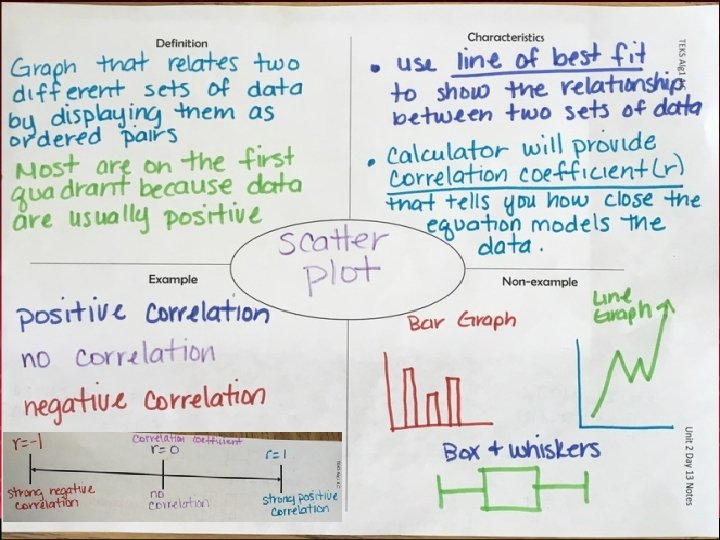 Definition
Graph that relates two
different sets of data
by displaying them as
ordered pairs
Most are on the first
quadrant because data
are usually positive
Characteristics
• use line of best fit
to show the relationship
between two sets of data
• Calculator will provide
correlation coefficient (r)
that tells you how close the
equation models the
data.
TEKS Alg1
scatter
plot
Example
positive correlation
no correlation
negative correlation
correlation coefficient
r=-1
r=0
r=1
strong negative
correlation
no
correlation
strong positive
correlation
Non-example
Bar Graph
Line
Graph
Box + whiskers
Unit 2 Day 13 Notes